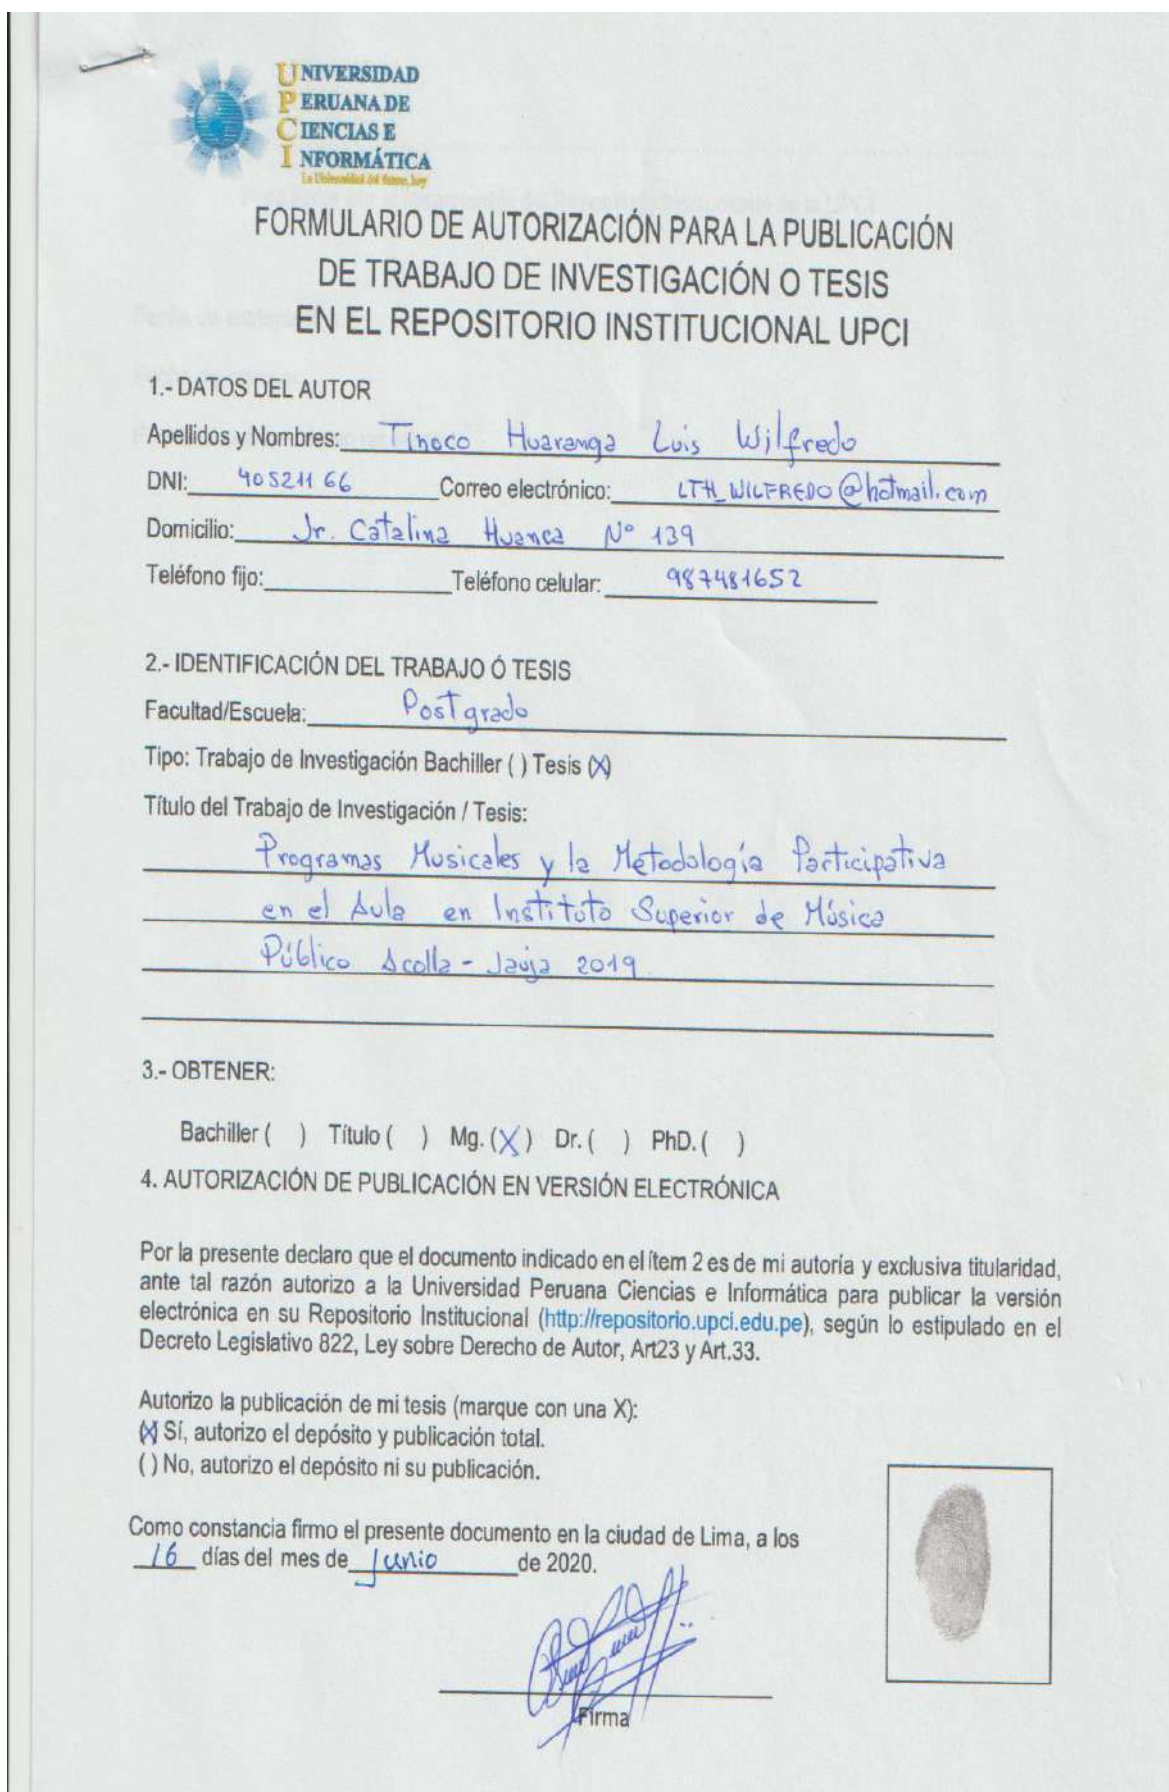 UNIVERSIDAD
PERUANA DE
CIENCIAS E
INFORMÁTICA
FORMULARIO DE AUTORIZACIÓN PARA LA PUBLICACIÓN
DE TRABAJO DE INVESTIGACIÓN O TESIS
EN EL REPOSITORIO INSTITUCIONAL UPCI
1.- DATOS DEL AUTOR
Apellidos y Nombres: Tinoco Huaranga Luis Wilfredo
DNI: 40521166 Correo electrónico: LTH_WILFREDO@hotmail.com
Domicilio: Jr. Catalina Huanca N° 139
Teléfono fijo: Teléfono celular: 987481652
2.- IDENTIFICACIÓN DEL TRABAJO Ó TESIS
Facultad/Escuela: Postgrado
Tipo: Trabajo de Investigación Bachiller ( ) Tesis (X)
Título del Trabajo de Investigación / Tesis:
Programas Musicales y la Metodología Participativa
en el Aula en Instituto Superior de Música
Público Acolla - Jauja 2019
3.- OBTENER:
Bachiller ( ) Título ( ) Mg. (X) Dr. ( ) PhD. ( )
4. AUTORIZACIÓN DE PUBLICACIÓN EN VERSIÓN ELECTRÓNICA
Por la presente declaro que el documento indicado en el ítem 2 es de mi autoría y exclusiva titularidad,
ante tal razón autorizo a la Universidad Peruana Ciencias e Informática para publicar la versión
electrónica en su Repositorio Institucional (http://repositorio.upci.edu.pe), según lo estipulado en el
Decreto Legislativo 822, Ley sobre Derecho de Autor, Art23 y Art.33.
Autorizo la publicación de mi tesis (marque con una X):
(X) Sí, autorizo el depósito y publicación total.
( ) No, autorizo el depósito ni su publicación.
Como constancia firmo el presente documento en la ciudad de Lima, a los
16 días del mes de junio de 2020.
Firma